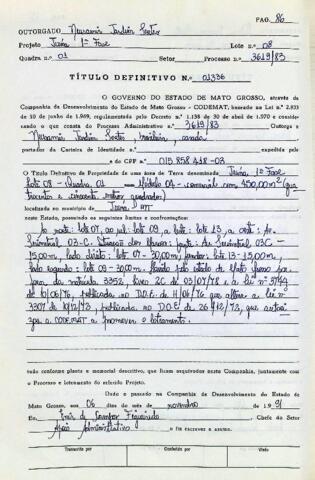 PAG. 86
OUTORGADO Neusamir Jardim Porto
Projeto Juína 1ª Fase Lote n.º 08
Quadra n.º 01 Setor Processo n.º 3619/83
TÍTULO DEFINITIVO N.º 01336
O GOVERNO DO ESTADO DE MATO GROSSO, através da
Companhia de Desenvolvimento do Estado de Mato Grosso - CODEMAT, baseado na Lei n.º 2.833
de 10 de junho de 1.969, regulamentado pelo Decreto n.º 1.138 de 30 de abril de 1.970 e conside-
rando o que consta do Processo Administrativo n.º 3619/83 Outorga a
Neusamir Jardim Porto, brasileiro,
portador da Carteira de Identidade n.º expedida pelo
e do CPF n.º 015 858 448-03
O Título Definitivo de Propriedade de uma área de Terra denominada Juína, 1ª Fase
Lote 08 - Quadra 01 com 450,00m² (qua
trocentos e cincoenta metros quadrados)
localizada no município de Juína, MT
neste Estado, possuindo os seguintes limites e confrontações:
Ao norte: lote 07, ao sul: lote 09, a lote 13, a
03-C. 03C -
15,00m, lado direito: lote 07 - 30,00m, lote 13 - 15,00m,
lado esquerdo: lote 09 - 30,00m.
da matrícula 3352, livro 2C de 03/07/78 e a lei nº 3744
de 10/06/76, publicada no D.O.E. de 11/06/76 que altera a lei nº
3307 de 18/12/73, publicada no D.O.E. de 26/12/73, que autori
za a CODEMAT a promover o loteamento.
tudo conforme planta e memorial descritivo, que ficam arquivados nesta Companhia, juntamente com
o Processo e loteamento do referido Projeto.
Dado e passado na Companhia de Desenvolvimento do Estado de
Mato Grosso, aos 06 dias do mês de novembro de 1991
Eu, Enir de Campos Figueiredo Chefe do Setor
Apoio Administrativo o fiz escrever e assino.
Transcrito por Conferido por Visto